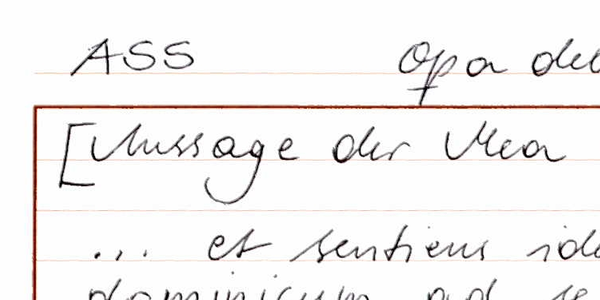 ASS Opa de
[Aussage der Mea
... et sentiens id
dominicum ad se